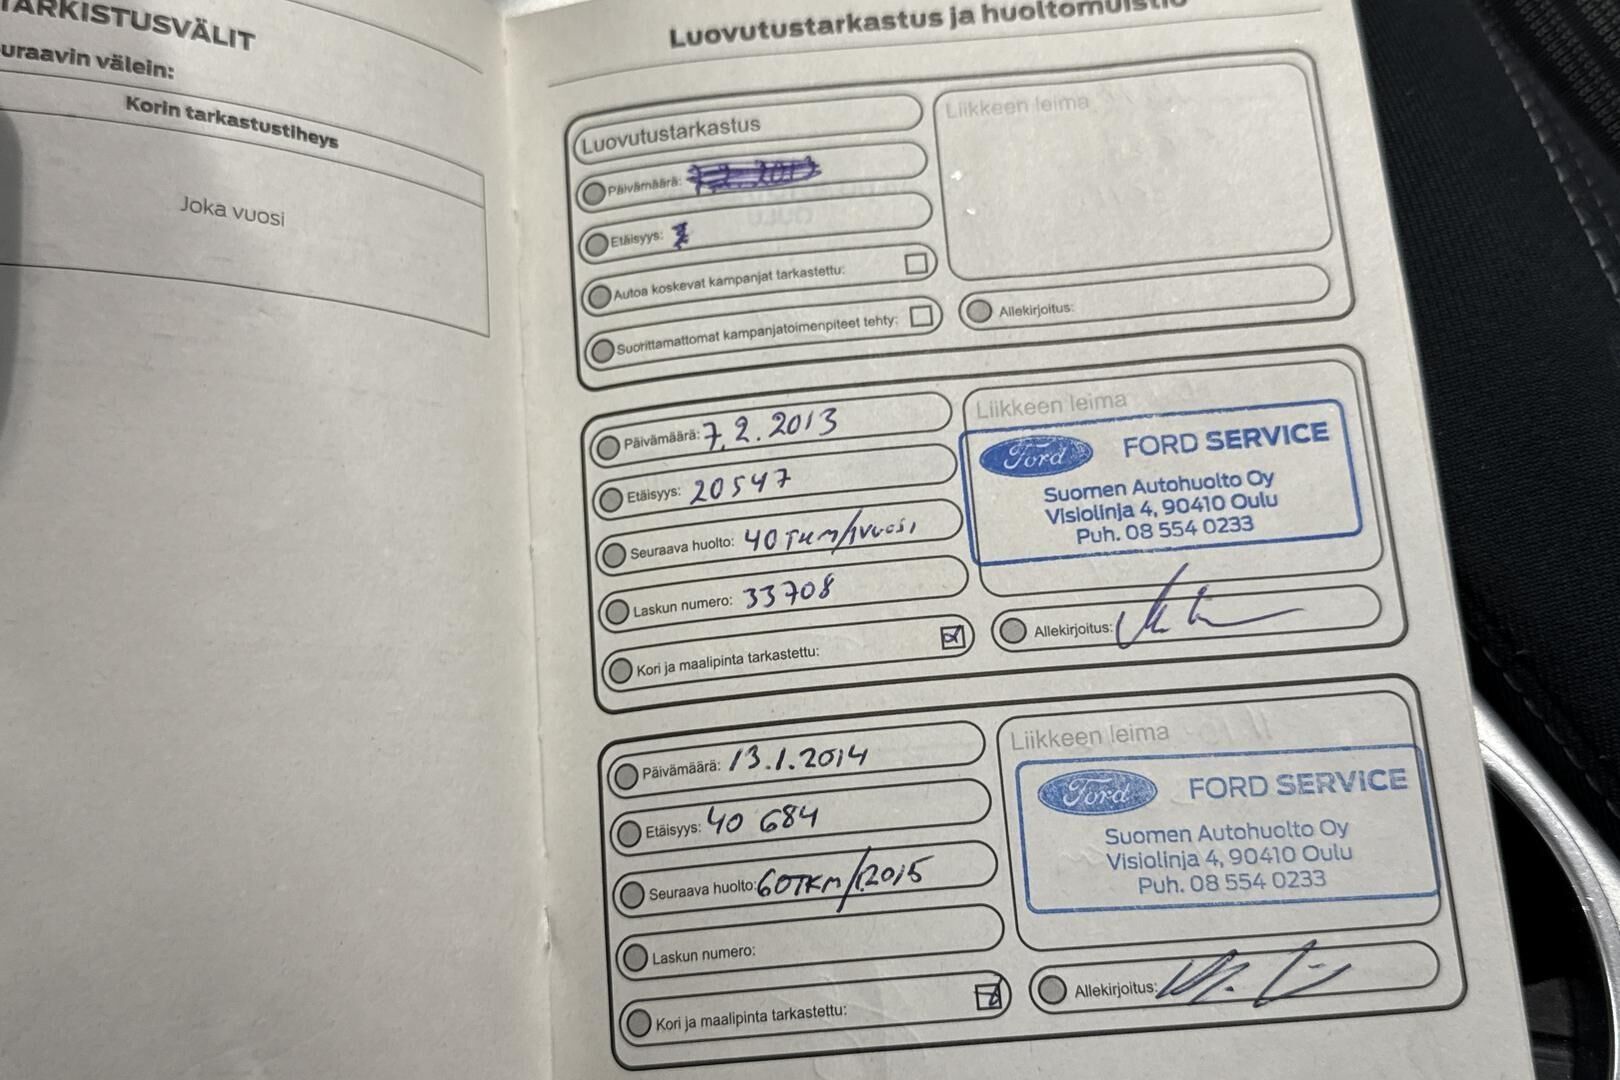 TARKISTUSVÄLIT
uraavin välein:
Korin tarkastustiheys
Joka vuosi
Luovutustarkastus ja huoltomuistio
Luovutustarkastus
Päivämäärä: 7.2.2013
Etäisyys:
Autoa koskevat kampanjat tarkastettu:
Suorittamattomat kampanjatoimenpiteet tehty:
Liikkeen leima
Allekirjoitus:
Päivämäärä: 7.2.2013
Etäisyys: 20547
Seuraava huolto: 40 TKM/1vuosi
Laskun numero: 33708
Kori ja maalipinta tarkastettu:
Liikkeen leima
Ford FORD SERVICE
Suomen Autohuolto Oy
Visiolinja 4, 90410 Oulu
Puh. 08 554 0233
Allekirjoitus:
Päivämäärä: 13.1.2014
Etäisyys: 40 684
Seuraava huolto: 60TKM/1.2015
Laskun numero:
Kori ja maalipinta tarkastettu:
Liikkeen leima
Ford FORD SERVICE
Suomen Autohuolto Oy
Visiolinja 4, 90410 Oulu
Puh. 08 554 0233
Allekirjoitus: